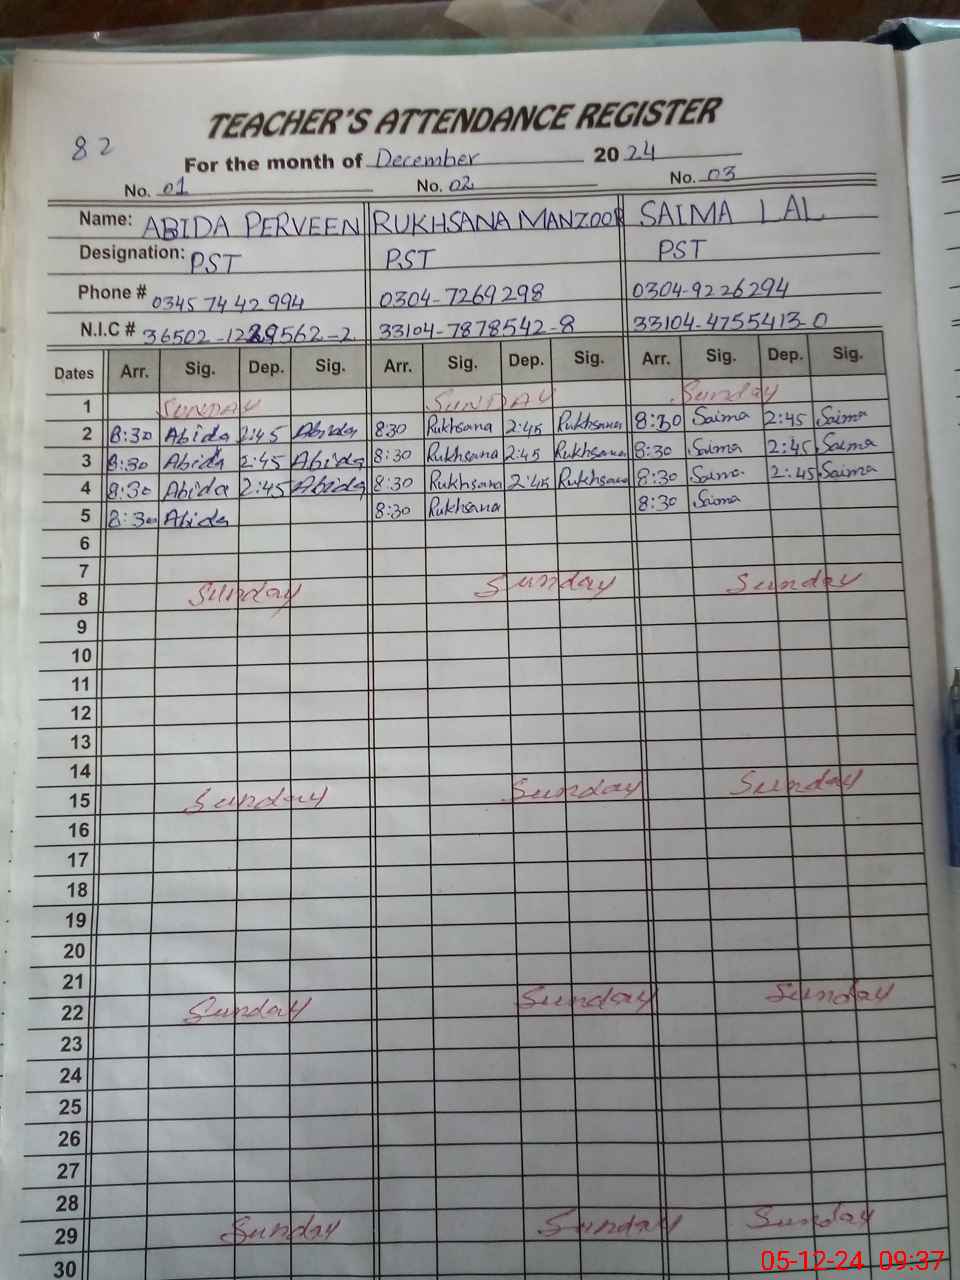 TEACHER'S ATTENDANCE REGISTER
82
For the month of December 2024
No. 01 No. 02 No. 03
Name: ABIDA PERVEEN RUKHSANA MANZOOR SAIMA LAL
Designation: PST PST PST
Phone # 0345 74 42 994 0304-7269298 0304-9226294
N.I.C # 36502 562-2 33104-7878542-8 33104-4755413-0
Dates Arr. Sig. Dep. Sig. Arr. Sig. Dep. Sig. Arr. Sig. Dep. Sig.
1 SUNDAY SUNDAY Sunday
2 8:30 Abida 2:45 Abida 830 Rukhsana 2:45 Rukhsana 8:30 Saima 2:45 Saima
3 8:30 Abida 2:45 Abida 8:30 Rukhsana 2:45 Rukhsana 8:30 Saima 2:45 Saima
4 8:30 Abida 2:45 Abida 8:30 Rukhsana 2:45 Rukhsana 8:30 Saima 2:45 Saima
5 8:30 Abida 8:30 Rukhsana 8:30 Saima
6
7
8 Sunday Sunday Sunday
9
10
11
12
13
14
15 Sunday Sunday Sunday
16
17
18
19
20
21
22 Sunday Sunday Sunday
23
24
25
26
27
28
29 Sunday Sunday Sunday
30
05-12-24 09:37